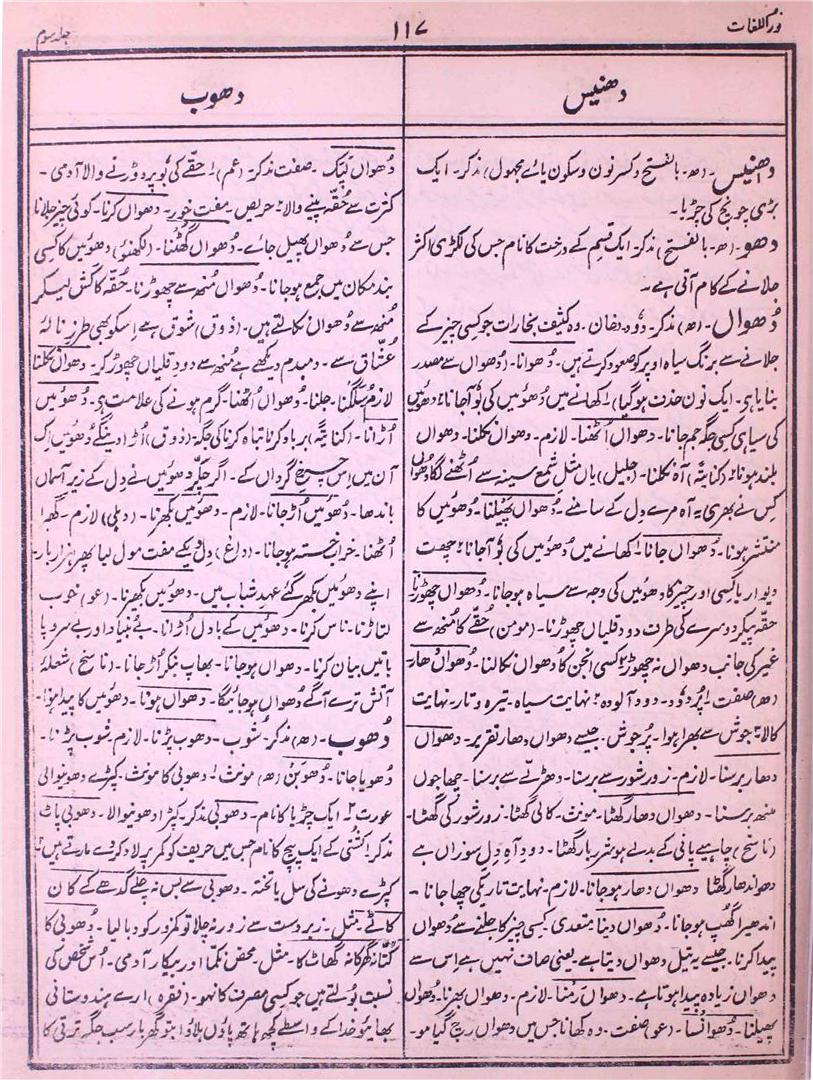 نور اللغات
۱۱۷
جلد سوم
دھنیس
دھوب
دھنیس۔ (ھ۔ بالفتح وکسر نون وسکون یائے مجہول) مذکر۔ ایک
بڑی چونچ کی چڑیا۔
دھو۔ (ھ۔ بالفتح) مذکر۔ ایک قسم کے درخت کا نام جس کی لکڑی اکثر
جلانے کے کام آتی ہے۔
دُھواں۔ (ھ) مذکر۔ دُود۔ دخان۔ وہ کثیف بخارات جو کسی چیز کے
جلانے سے برنگ سیاہ اوپر کو صعود کرتے ہیں۔ دُھوانا۔ (دُھواں سے مصدر
بنایا ہی۔ ایک نون حذف ہو گیا) ۱ کھانے میں دُھوئیں کی بُو آجانا ۲ دھوئیں
کی سیاہی کسی جگہ جم جانا۔ دھواں اُٹھنا۔ لازم۔ دھواں نکلنا۔ دھواں
بلند ہونا ۲ (کنایۃً) آہ نکلنا۔ (جلیل) ہاں مثل شمع سینہ سے اُٹھنے لگا دُھواں
کس نے بھری یہ آہ مرے دل کے سامنے۔ دُھواں پھیلنا۔ دُھوئیں کا
منتشر ہونا۔ دُھواں جانا۔ ۱ کھانے میں دُھوئیں کی بُو آجانا ۲ چھت
دیوار یا کسی اور چیز کا دھوئیں کی وجہ سے سیاہ ہو جانا۔ دُھواں چھوڑنا
حقہ پیکر دوسرے کی طرف دود قلیاں چھوڑنا۔ (مومن) حُقّے کا مُنھ سے
غیر کی جانب دھواں نہ چھوڑ ۲ کسی انجن کا دُھواں نکالنا۔ دھواں دھار۔
(ھ) صفت ۱ پُر دُود۔ دود آلودہ ۲ نہایت سیاہ۔ تیرہ و تار۔ نہایت
کالا ۳ جوش سے بھرا ہوا۔ پُر جوش۔ جیسے دھواں دھار تقریر۔ دھواں
دھار برسنا۔ لازم۔ زور شور سے برسنا۔ دھڑلّے سے برسنا۔ چھاجوں
مینھ برسنا۔ دھواں دھار گھٹا۔ مونث۔ کالی گھٹا۔ زور شور کی گھٹا۔
(ناسخ) چاہیے پانی کے بدلے ہو شرر بار گھٹا۔ دودِ آہِ دل سوزاں ہے
دھوندھار گھٹا دھواں دھار ہو جانا۔ لازم۔ نہایت تاریکی چھا جانا۔
اندھیرا گھپ ہو جانا۔ دُھواں دینا۔ متعدی۔ کسی چیز کا جلنے سے دُھواں
پیدا کرنا۔ جیسے یہ تیل دھواں دیتا ہے۔ یعنی صاف نہیں ہے اِس سے
دھواں زیادہ پیدا ہوتا ہے۔ دھواں رَمنا۔ لازم۔ دھواں بھرنا۔ دُھواں
پھیلنا۔ دُھوانسا۔ (عو) صفت۔ وہ کھانا جس میں دھواں رچ گیا ہو۔
دُھواں لپک۔ صفت مذکر۔ (عم) ۱ حقّے کی بُو پر دوڑنے والا آدمی۔
کثرت سے حُقّہ پینے والا ۲ حریص۔ مفت خور۔ دھواں کرنا۔ کوئی چیز جلانا
جس سے دُھواں پھیل جائے۔ دُھواں گھٹنا۔ (لکھنؤ) دھوئیں کا کسی
بند مکان میں جمع ہو جانا۔ دُھواں مُنھ سے چھوڑنا۔ حُقّہ کا کش لیکر
مُنھ سے دُھواں نکالتے ہیں۔ (ذوق) شوق ہے اِسکو بھی طرز نالۂ
عُشّاق سے۔ دمبدم دیکھے ہے مُنھ سے دود قلیاں چھوڑ کر۔ دھواں نکلنا
لازم سُلگنا۔ جلنا۔ دُھواں اُٹھنا۔ گرم ہونے کی علامت ہی۔ دُھوئیں
اُڑانا۔ (کنایۃً) برباد کرنا تباہ کرنا کی جگہ (ذوق) اُڑا دینگے دُھوئیں اِک
آن میں اِس چرخ گرداں کے۔ اگر چکر دھوئیں نے دل کے زیر آسماں
باندھا۔ دُھوئیں اُڑ جانا۔ لازم۔ دھوئیں بکھرنا۔ (دہلی) لازم۔ گھٹا
اُٹھنا۔ خراب خستہ ہو جانا۔ (داغ) دل دیکے مفت مول لیا پھر ہزار بار۔
اپنے دھوئیں بکھر گئے عہدِ شباب میں۔ دھوئیں بکھیرنا۔ (عو) خوب
لتاڑنا۔ ناس کرنا۔ دھوئیں کے بادل اُڑانا۔ بے بنیاد اور بے سر و پا
باتیں بیان کرنا۔ دھواں ہو جانا۔ بھاپ بنکر اُڑ جانا۔ (ناسخ) شعلۂ
آتش ترے آگے دُھواں ہو جائیگا۔ دھواں ہونا۔ دھوئیں کا پیدا ہونا۔
دُھوب۔ (ھ) مذکر۔ شُوب۔ دھوب پڑنا۔ لازم۔ شوب پڑنا۔
دُھویا جانا۔ دُھوبَن (ھ) مونث ۱ دھوبی کا مونث۔ کپڑے دھونیوالی
عورت ۲۔ ایک چڑیا کا نام۔ دھوبی۔ مذکر۔ کپڑا دھونیوالا۔ دھوبی پاٹ
مذکر ۱ کشتی کے ایک پیچ کا نام جس میں حریف کو کمر پر لاد کر دے مارتے ہیں ۲
کپڑے دھونے کی سِل یا تختہ۔ دھوبی سے بس نہ چلے گدھے کے کان
کاٹے۔ مثل۔ زبردست سے زور نہ چلا تو کمزور کو دبا لیا۔ دُھوبی کا
کُتا نہ گھر کا نہ گھاٹ کا۔ مثل۔ محض نکمّا اور بیکار آدمی۔ اُس شخص کی
نسبت بولتے ہیں جو کسی مصرف کا نہو۔ (فقرہ) ارے ہندوستانی
بھائیو خدا کے واسطے کچھ ہاتھ پاؤں ہلاؤ! بتو گھر بار سب جگہ ترقی کا